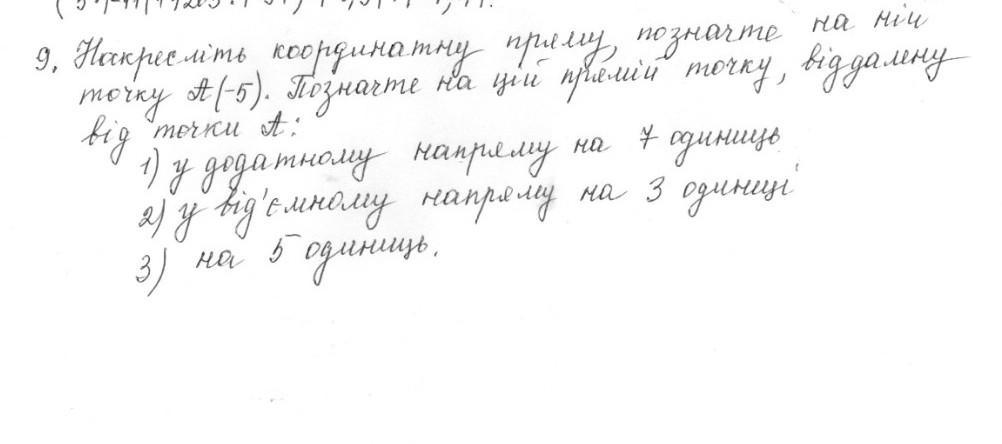 9. Накресліть координатну пряму, позначте на ній
точку А(-5). Позначте на цій прямій точку, віддалену
від точки А:
1) у додатному напряму на 7 одиниць
2) у від'ємному напряму на 3 одиниці
3) на 5 одиниць.